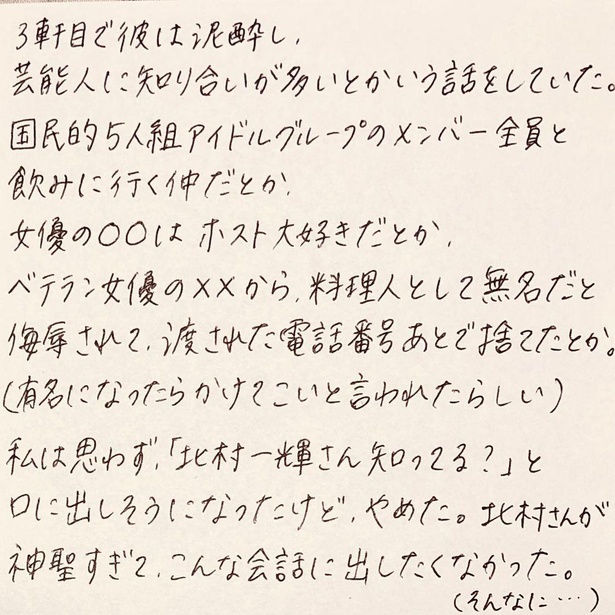 3軒目で彼は泥酔し、
芸能人に知り合いが多いとかいう話をしていた。
国民的5人組アイドルグループのメンバー全員と
飲みに行く仲だとか、
女優の〇〇はホスト大好きだとか、
ベテラン女優の××から、料理人として無名だと
侮辱されて、渡された電話番号あとで捨てたとか。
(有名になったらかけてこいと言われたらしい)
私は思わず、「北村一輝さん知ってる?」と
口に出しそうになったけど、やめた。北村さんが
神聖すぎて、こんな会話に出したくなかった。
(そんなに…)